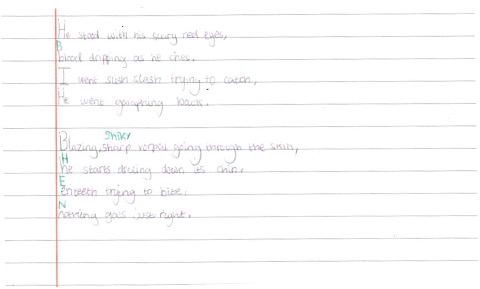 He stood with his scary red eyes,
B
blood dripping as he cries.
I went slish slash trying to catch,
He went galphing back.
Shiky
Blazing, sharp going through the skin,
H
he starts drcing down its chin.
E
enteeth trying to bite,
N
nothing gos just right.